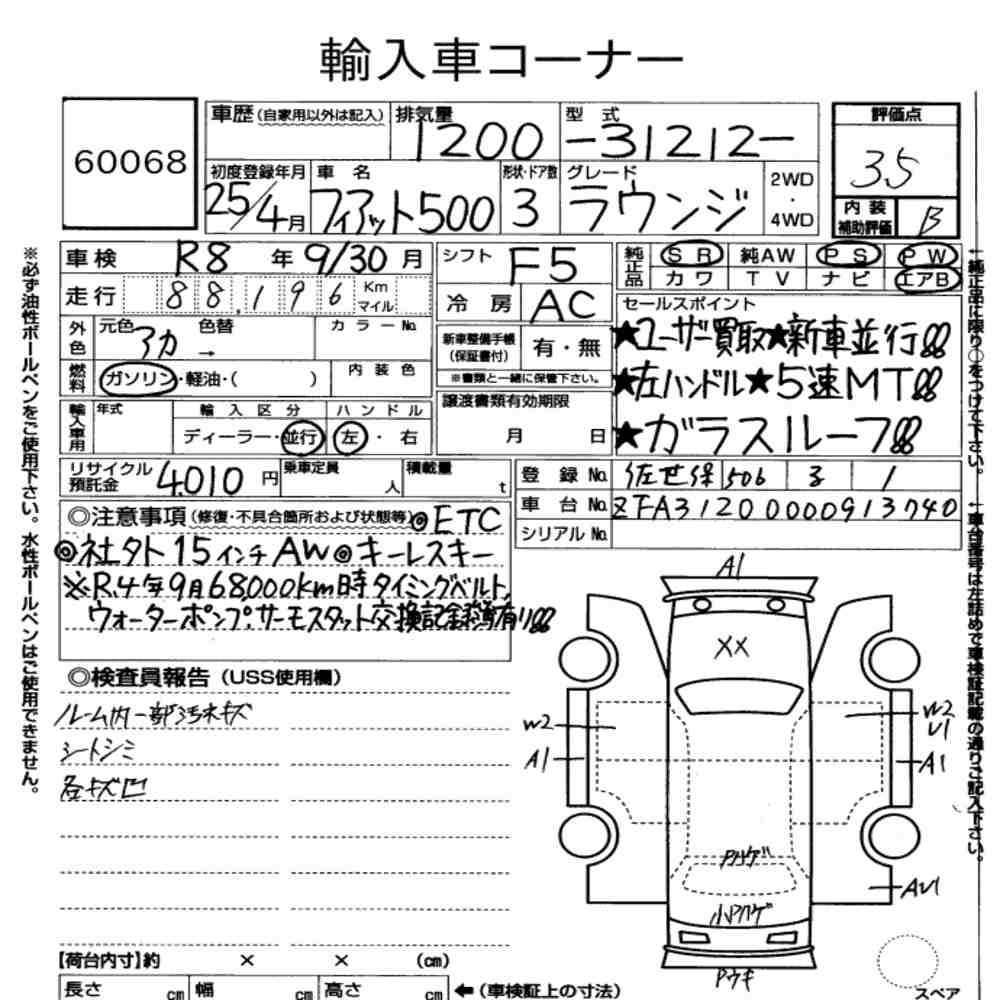 輸入車コーナー
60068
車歴 (自家用以外は記入) 排気量 1200 型式 -31212-
初度登録年月 25/4月 車名 フィアット500 形状・ドア数 3 グレード ラウンジ 2WD・4WD
評価点 35
内装補助評価 B
車検 R8年9/30月
走行 88,196 Km マイル
シフト F5
冷房 AC
純正品 SR 純AW PS PW
カワ TV ナビ エアB
外色 元色 アカ 色替 → カラーNo.
燃料 ガソリン・軽油・( ) 内装色
新車整備手帳(保証書付) 有・無
※書類と一緒に保管下さい。
セールスポイント
★ユーザー買取★新車並行!!
★左ハンドル★5速MT!!
★ガラスルーフ!!
輸入車用 年式 輸入区分 ディーラー・並行 ハンドル 左・右
譲渡書類有効期限 月 日
リサイクル預託金 4,010円 乗車定員 人 積載量 t
登録No. 佐世保 506 る 1
車台No. ZFA31200000913740
シリアルNo.
◎注意事項 (修復・不具合箇所および状態等) ◎ETC
◎社外15インチAW◎キーレスキー
※R.4年9月68,000km時タイミングベルト,
ウォーターポンプ.サーモスタット交換記録簿有り!!
◎検査員報告 (USS使用欄)
ルーム内一部汚れキズ
シートシミ
各キズ凹
A1
XX
W2
A1
W2
U1
A1
AU1
Pハゲ
小Pハゲ
Pウキ
スペア
【荷台内寸】約 × × (cm)
長さ cm 幅 cm 高さ cm ←(車検証上の寸法)
※必ず油性ボールペンをご使用下さい。水性ボールペンはご使用できません。
←純正品に限り○をつけて下さい。
←車台番号は左詰めで車検証記載の通りご記入下さい。